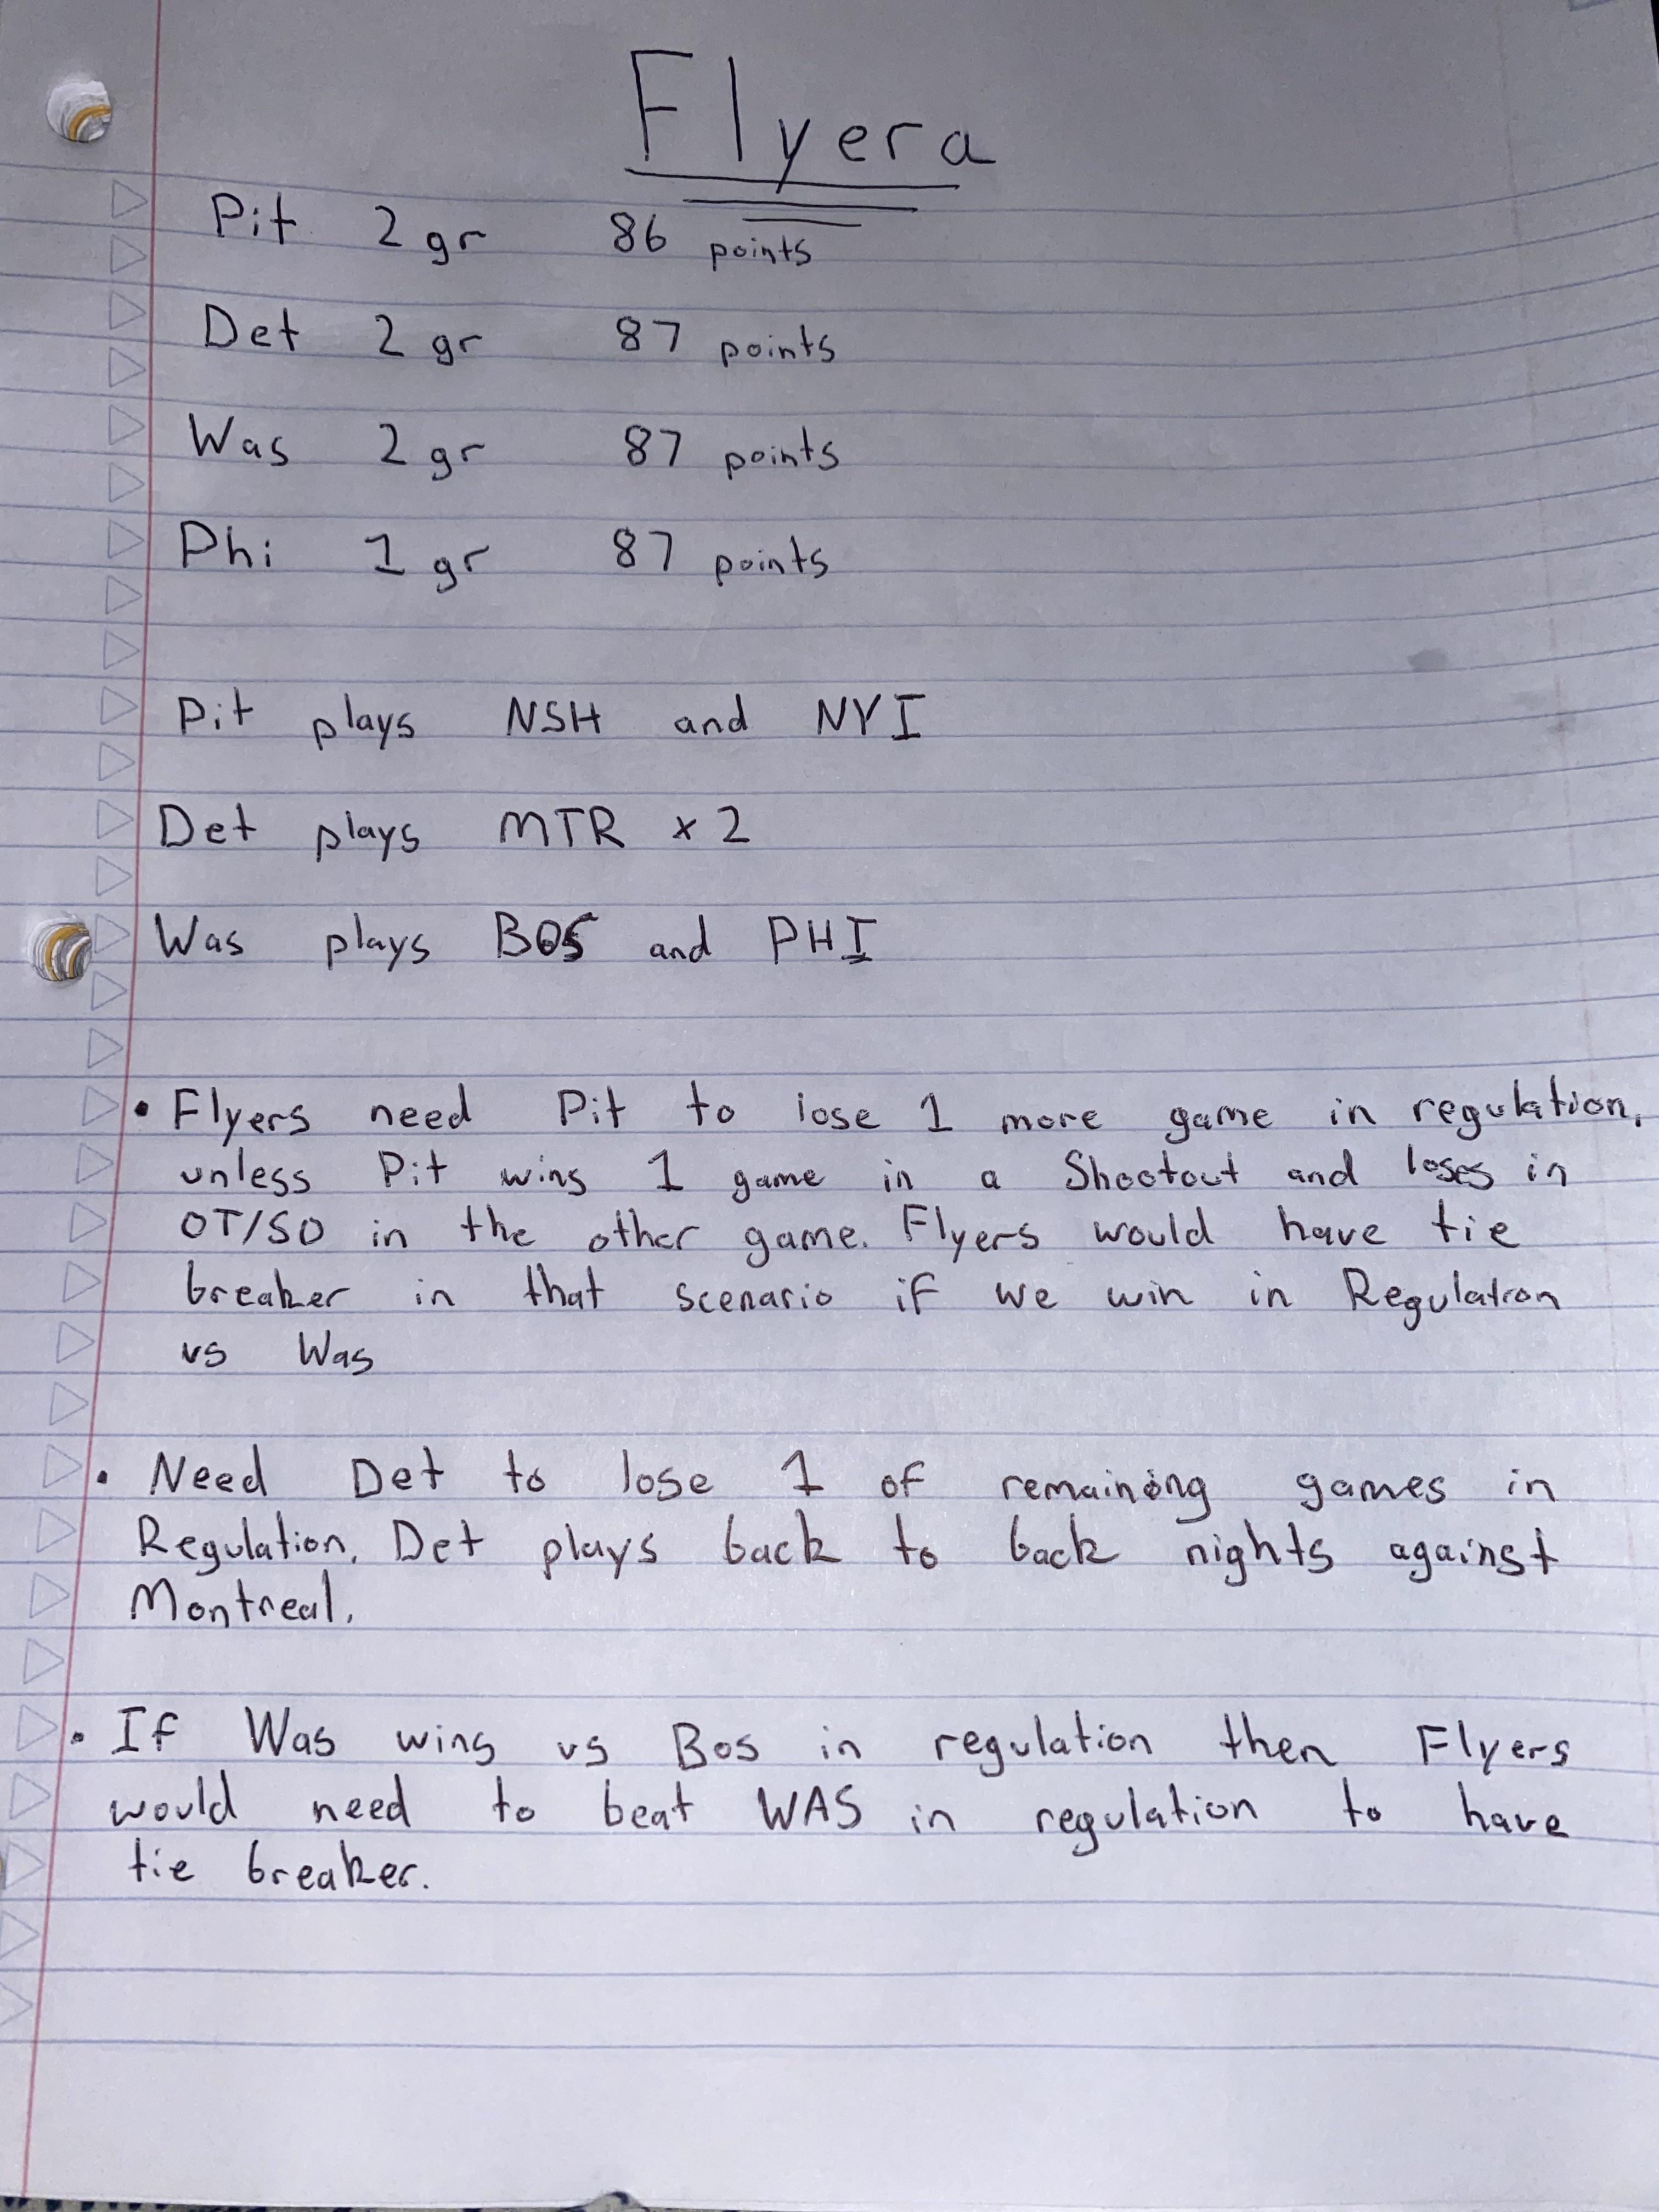 Flyera
Pit 2 gr 86 points
Det 2 gr 87 points
Was 2 gr 87 points
Phi 1 gr 87 points
Pit plays NSH and NYI
Det plays MTR x 2
Was plays BOS and PHI
• Flyers need Pit to lose 1 more game in regulation,
unless Pit wins 1 game in a Shootout and loses in
OT/SO in the other game. Flyers would have tie
breaker in that scenario if we win in Regulation
vs Was
• Need Det to lose 1 of remaining games in
Regulation. Det plays back to back nights against
Montreal.
• If Was wins vs Bos in regulation then Flyers
would need to beat WAS in regulation to have
tie breaker.